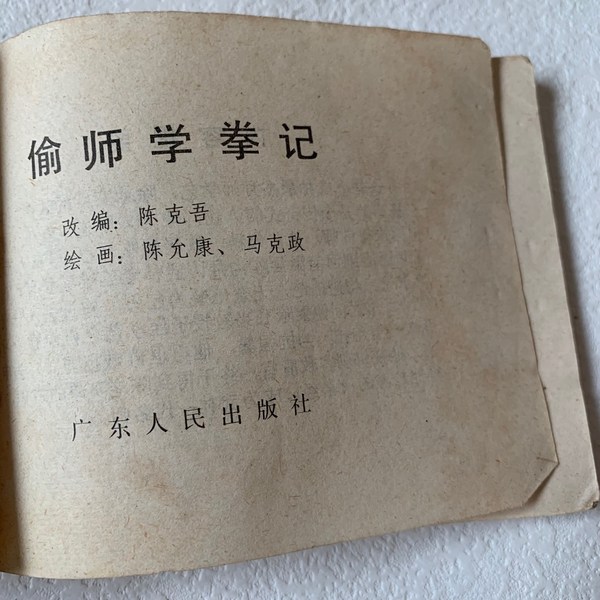 偷师学拳记
改编：陈克吾
绘画：陈允康、马克政
广东人民出版社